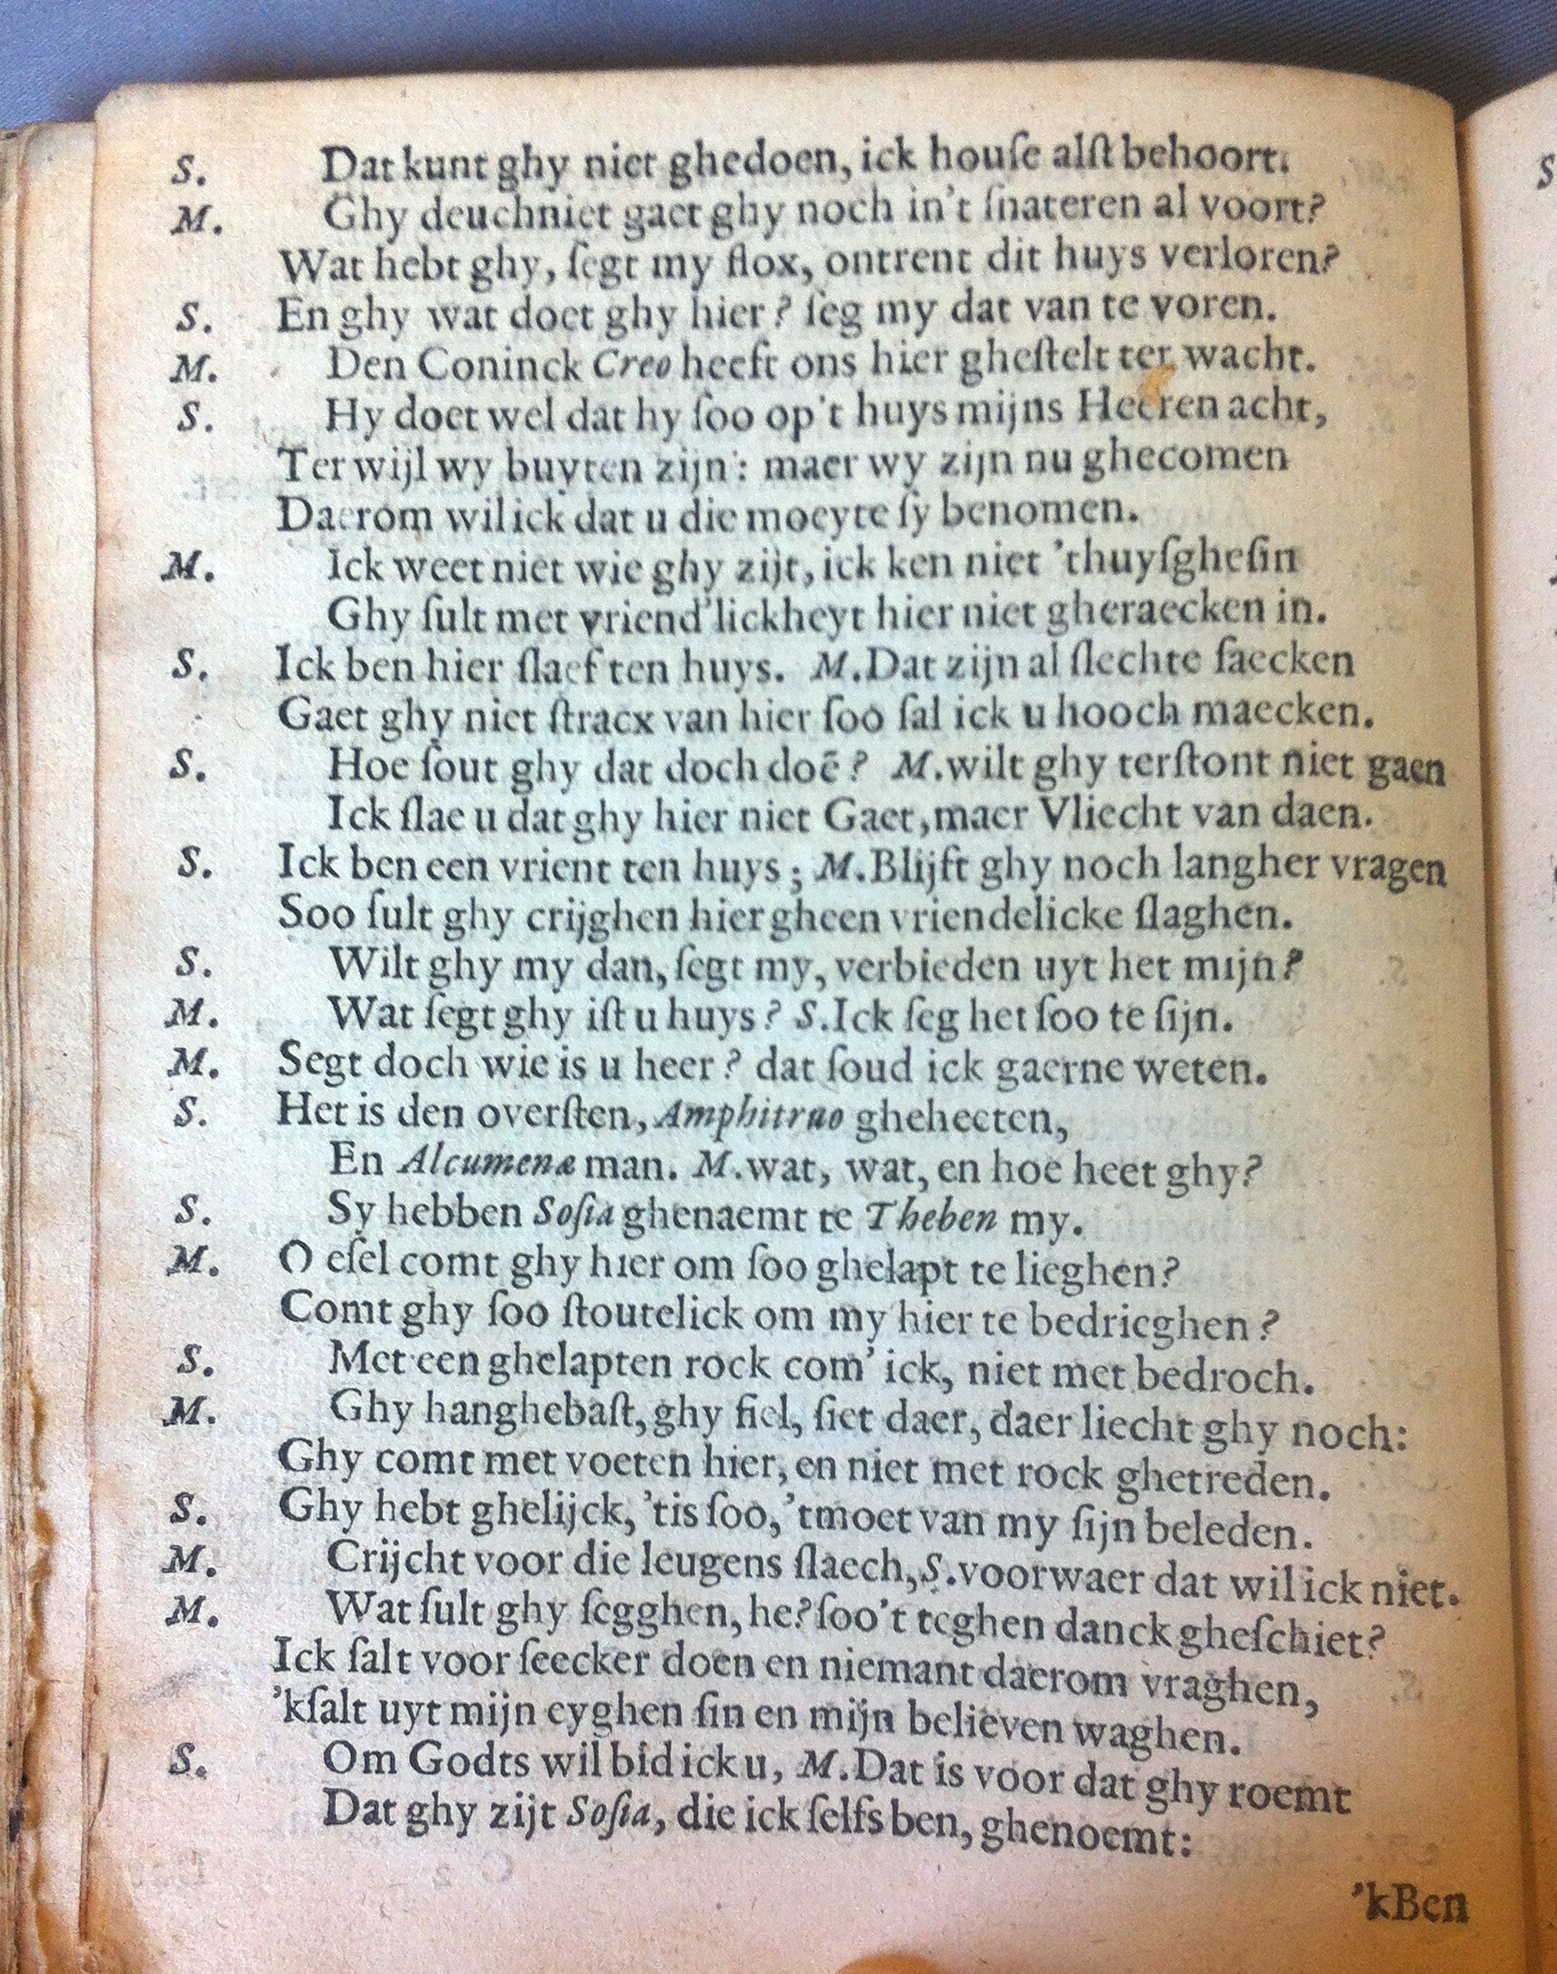 S. Dat kunt ghy niet ghedoen, ick houſe alſt behoort.
M. Ghy deuchniet gaet ghy noch in't ſnateren al voort?
Wat hebt ghy, ſegt my flox, ontrent dit huys verloren?
S. En ghy wat doet ghy hier? ſeg my dat van te voren.
M. Den Coninck Creo heeft ons hier gheſtelt ter wacht.
S. Hy doet wel dat hy ſoo op't huys mijns Heeren acht,
Terwijl wy buyten zijn: maer wy zijn nu ghecomen
Daerom wil ick dat u die moeyte ſy benomen.
M. Ick weet niet wie ghy zijt, ick ken niet 'thuyſgheſin
Ghy ſult met vriend'lickheyt hier niet gheraecken in.
S. Ick ben hier ſlaef ten huys. M.Dat zijn al ſlechte ſaecken
Gaet ghy niet ſtracx van hier ſoo ſal ick u hooch maecken.
S. Hoe ſout ghy dat doch doē? M.wilt ghy terſtont niet gaen
Ick ſlae u dat ghy hier niet Gaet, maer Vliecht van daen.
S. Ick ben een vrient ten huys; M.Blijft ghy noch langher vragen
Soo ſult ghy crijghen hier gheen vriendelicke ſlaghen.
S. Wilt ghy my dan, ſegt my, verbieden uyt het mijn?
M. Wat ſegt ghy iſt u huys? S.Ick ſeg het ſoo te ſijn.
M. Segt doch wie is u heer? dat ſoud ick gaerne weten.
S. Het is den overſten, Amphitruo ghehecten,
En Alcumenæ man. M.wat, wat, en hoe heet ghy?
S. Sy hebben Soſia ghenaemt te Theben my.
M. O eſel comt ghy hier om ſoo ghelapt te lieghen?
Comt ghy ſoo ſtoutelick om my hier te bedrieghen?
S. Met een ghelapten rock com' ick, niet met bedroch.
M. Ghy hanghebaſt, ghy fiel, ſiet daer, daer liecht ghy noch:
Ghy comt met voeten hier, en niet met rock ghetreden.
S. Ghy hebt ghelijck, 'tis ſoo, 'tmoet van my ſijn beleden.
M. Crijcht voor die leugens ſlaech, S.voorwaer dat wil ick niet.
M. Wat ſult ghy ſegghen, he? ſoo't teghen danck gheſchiet?
Ick ſalt voor ſeecker doen en niemant daerom vraghen,
'kſalt uyt mijn eyghen ſin en mijn believen waghen.
S. Om Godts wil bid ick u, M.Dat is voor dat ghy roemt
Dat ghy zijt Soſia, die ick ſelfs ben, ghenoemt:
'kBen